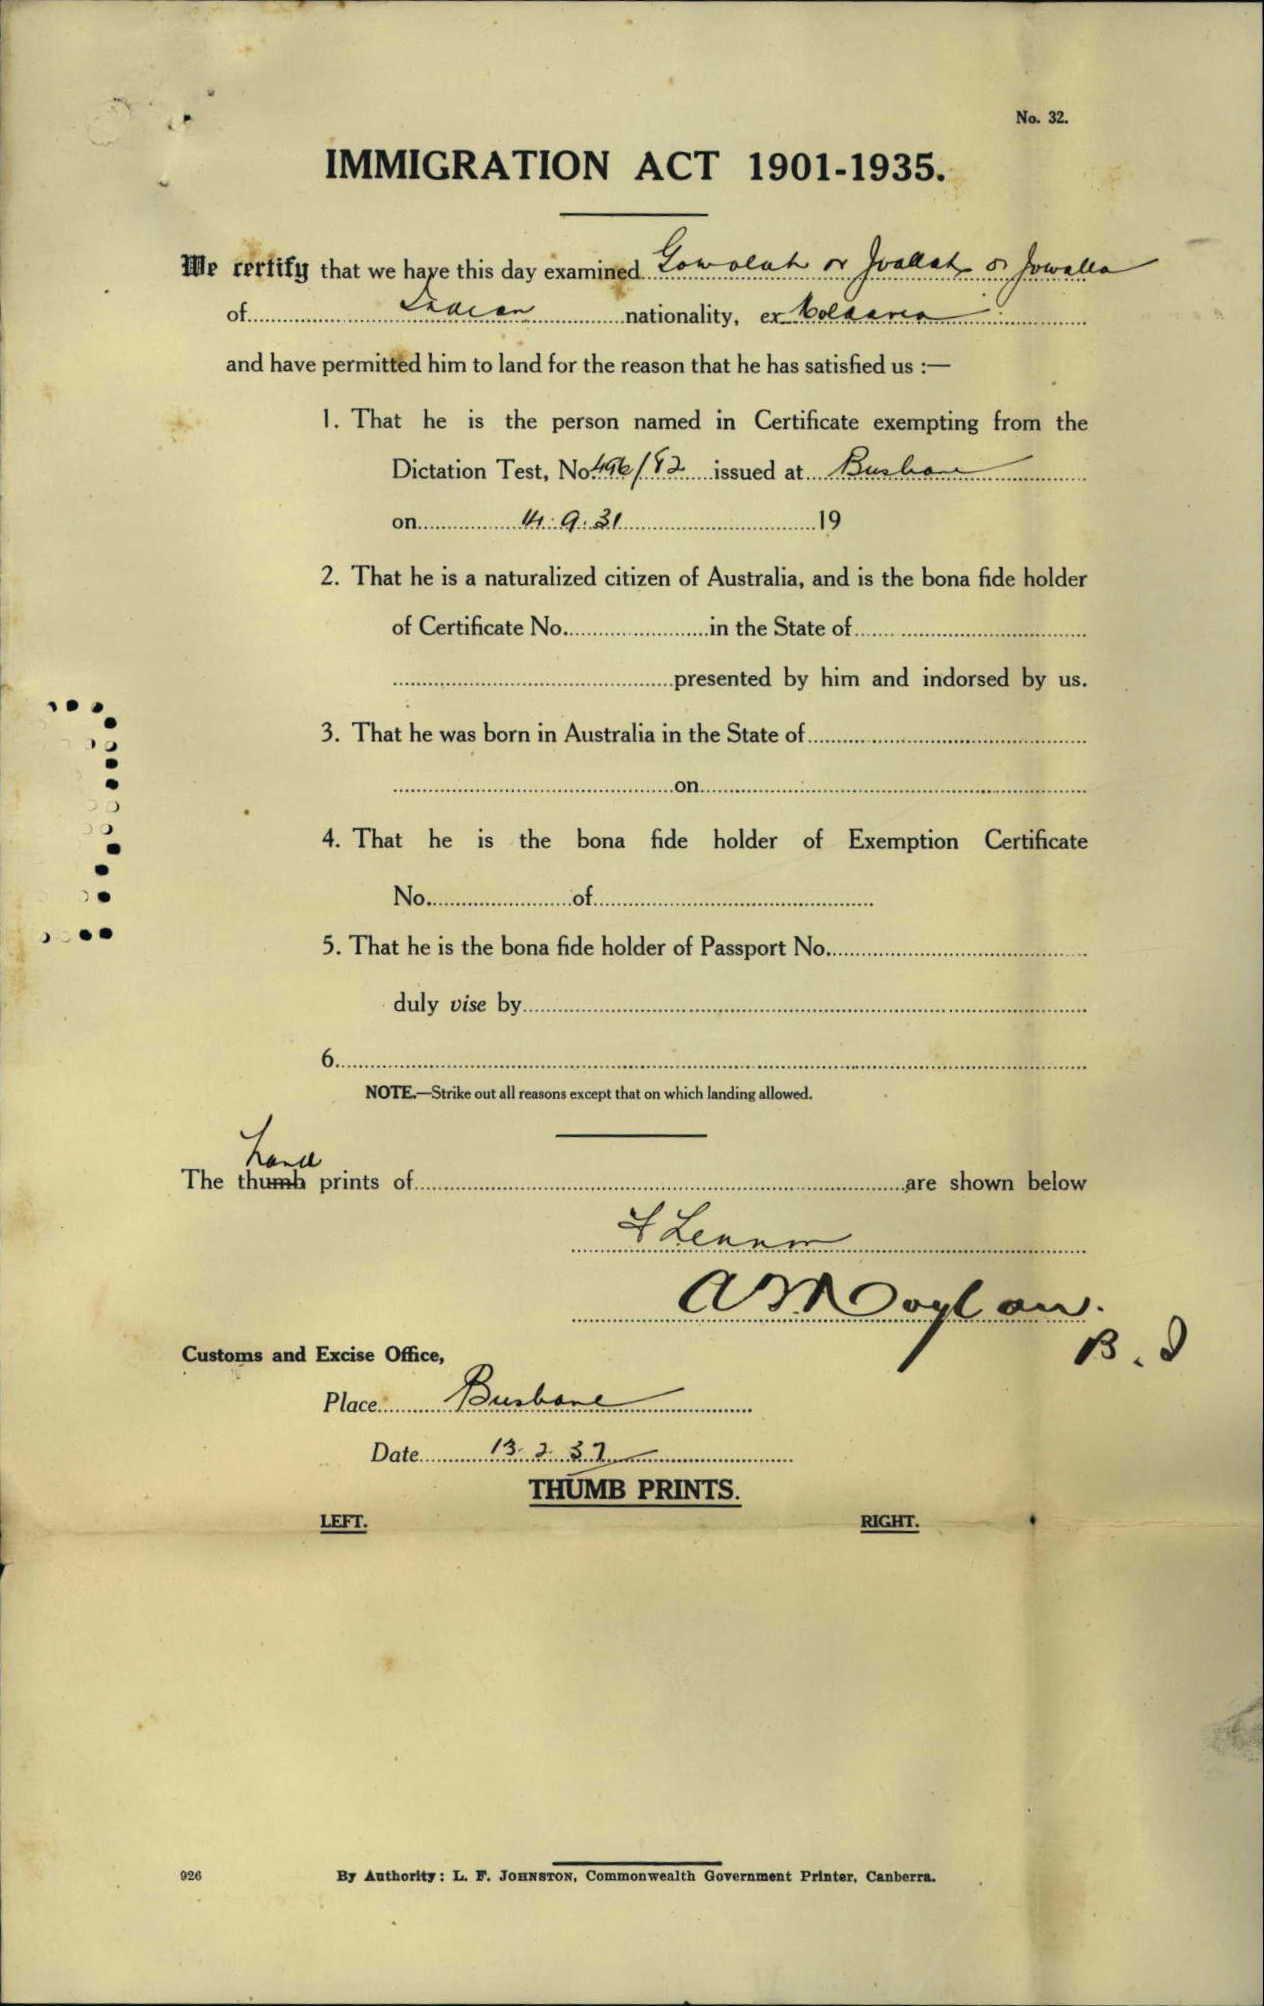 No. 32.
IMMIGRATION ACT 1901-1935.
We certify that we have this day examined Gowolah or Joallah or Jowalla
of Indian nationality, ex Moldavia
and have permitted him to land for the reason that he has satisfied us :—
1. That he is the person named in Certificate exempting from the
Dictation Test, No. 496/82 issued at Brisbane
on 14.9.31 19
2. That he is a naturalized citizen of Australia, and is the bona fide holder
of Certificate No. in the State of
presented by him and indorsed by us.
3. That he was born in Australia in the State of
on
4. That he is the bona fide holder of Exemption Certificate
No. of
5. That he is the bona fide holder of Passport No.
duly vise by
6.
NOTE.—Strike out all reasons except that on which landing allowed.
hand
The thumb prints of are shown below
A M Moylan.
B. I
Customs and Excise Office,
Place Brisbane
Date 13.2.37
THUMB PRINTS.
LEFT. RIGHT.
926 By Authority: L. F. JOHNSTON, Commonwealth Government Printer, Canberra.